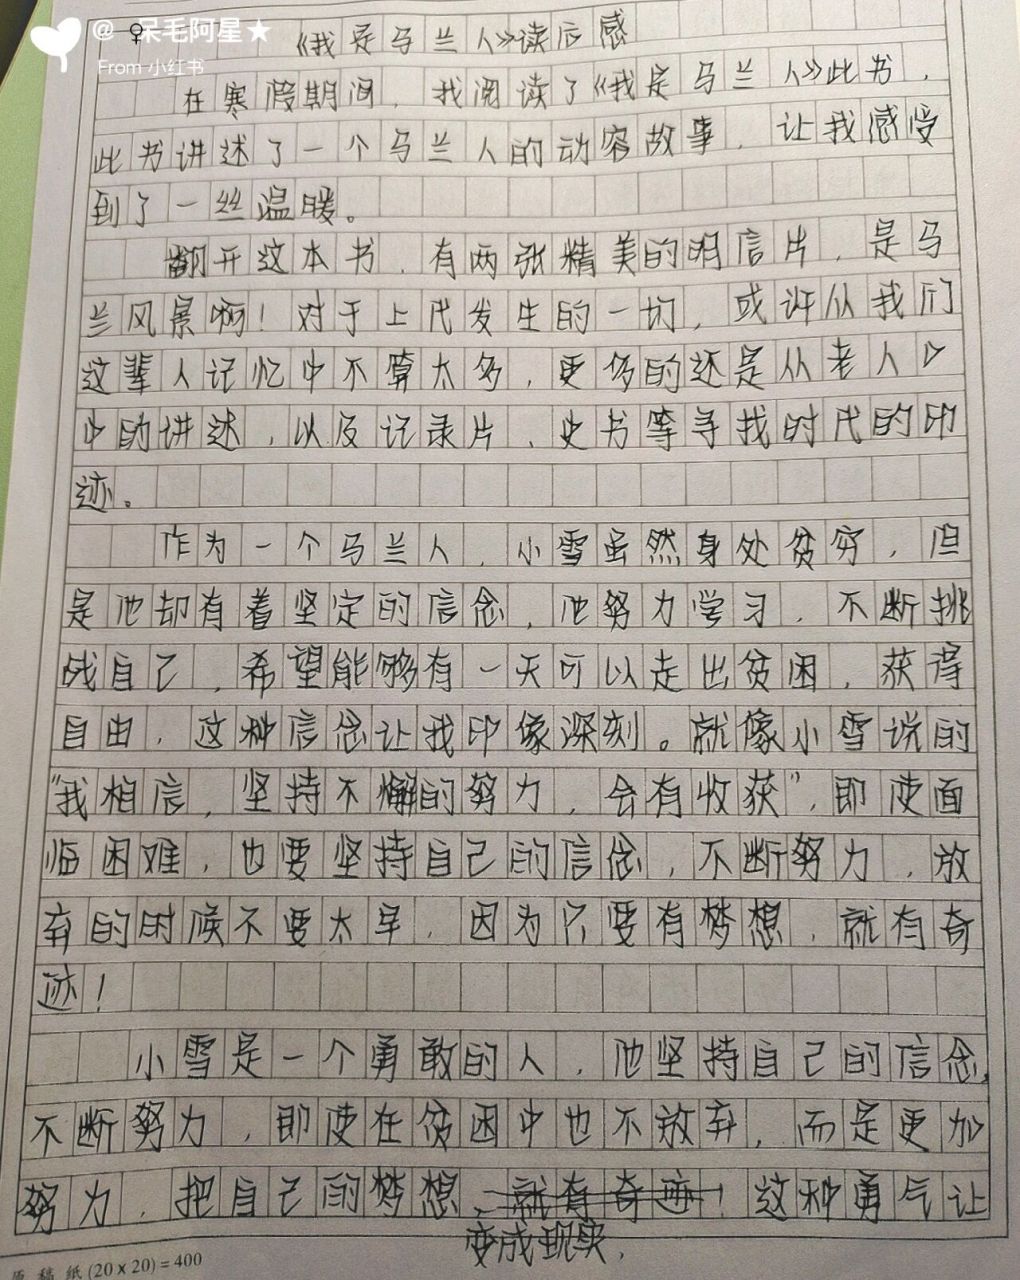 @♀呆毛阿星★
From 小红书
《我是马兰人》读后感
在寒假期间，我阅读了《我是马兰人》此书，
此书讲述了一个马兰人的动容故事，让我感受
到了一丝温暖。
翻开这本书，有两张精美的明信片，是马
兰风景啊！对于上代发生的一切，或许从我们
这辈人记忆中不算太多，更多的还是从老人口
中的讲述，以及记录片，史书等寻找时代的印
迹。
作为一个马兰人，小雪虽然身处贫穷，但
是他却有着坚定的信念，他努力学习，不断挑
战自己，希望能够有一天可以走出贫困，获得
自由，这种信念让我印像深刻。就像小雪说的
"我相信，坚持不懈的努力，会有收获"，即使面
临困难，也要坚持自己的信念，不断努力，放
弃的时候不要太早，因为只要有梦想，就有奇
迹！
小雪是一个勇敢的人，他坚持自己的信念，
不断努力，即使在贫困中也不放弃，而是更加
努力，把自己的梦想，就有奇迹！这种勇气让
变成现实，
原稿纸(20×20)=400